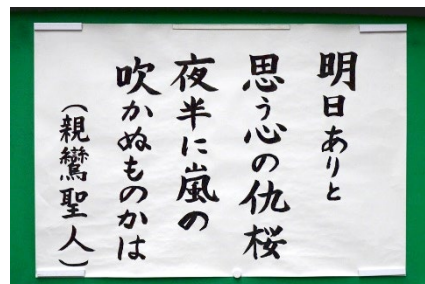 明日ありと
思う心の仇桜
夜半に嵐の
吹かぬものかは
（親鸞聖人）